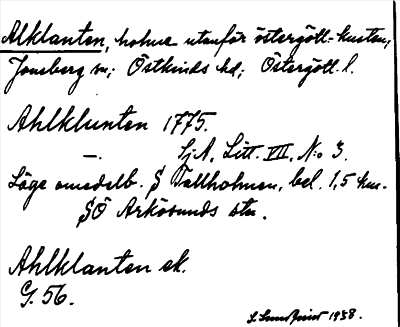 Alklanten, holme utanför östergötl.-kusten;
Jonsberg sn; Östkinds hd; Östergötl. l.
Ahlklunten 1775.
—. SjA, Litt. VII, N:o 3.
Läge omedelb. S Tallholmen, bel. 1,5 km.
SÖ Arkösunds stn.
Ahlklanten ek.
G. 56.
1938.